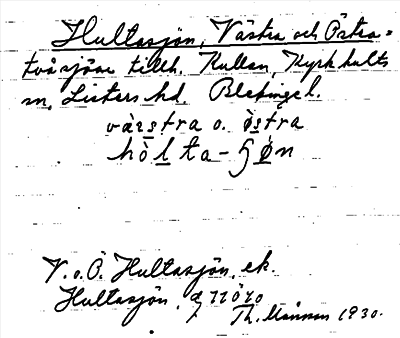 Hultasjön, Västra och Östra =
två sjöar tillh. Kullan, Kyrkhults
sn, Listers hd. Blekinge l.
västra o. östra
hòlta-
V. o. Ö. Hultasjön, ek.
Hultasjön,
Th. 1930.